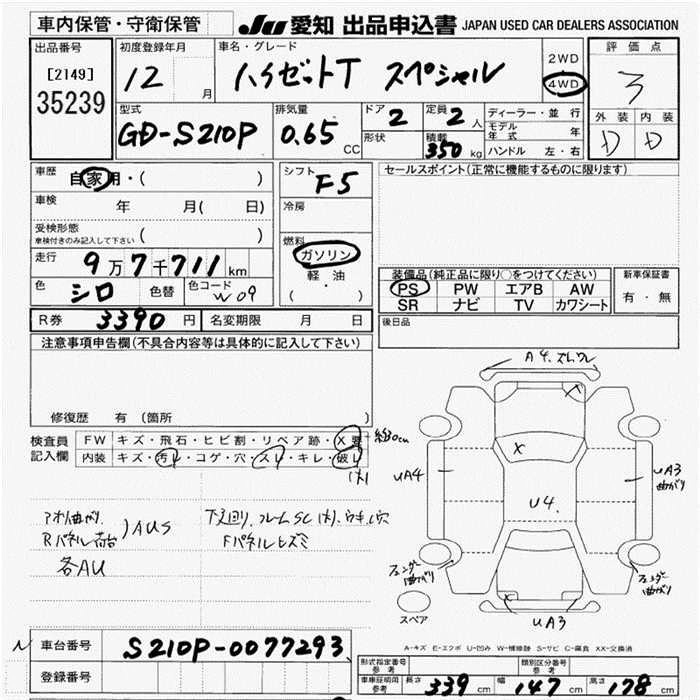 車内保管・守衛保管 JU 愛知 出品申込書 JAPAN USED CAR DEALERS ASSOCIATION
出品番号 初度登録年月 車名・グレード 評価点
[2149] 12 月 ハイゼットT スペシャル 2WD 4WD 3
35239
型式 排気量 ドア 定員 ディーラー・並行 外装 内装
GD-S210P 0.65 CC 2 2人 モデル年式 年 D D
形状 積載 350 kg ハンドル 左・右
車歴 自家用・( ) シフト F5 セールスポイント(正常に機能するものに限ります)
車検 年 月( 日) 冷房
受検形態
車検付きのみ記入して下さい ( )
燃料
走行 9万7千711km ガソリン 装備品(純正品に限り○をつけてください) 新車保証書
軽・油 PS PW エアB AW 有・無
色 シロ 色替 色コード W09 ( ) SR ナビ TV カワシート
R券 3390 円 名変期限 月 日 後日品
注意事項申告欄(不具合内容等は具体的に記入して下さい)
A4.ズレワレ
修復歴 有 (箇所 )
検査員 FW キズ・飛石・ヒビ割・リペア跡・X要 30cm
記入欄 内装 キズ・汚レ・コゲ・穴・スレ・キレ・破レ
(大)
X
UA4 UA3
曲がり
U4.
アオリ曲がり.
Rパネル荷台 )AUS
各AU
下廻り.フレームSC(大).ウキ.穴
Fパネルヒズミ
フェンダー曲がり フェンダー曲がり
スペア UA3
A-キズ E-エクボ U-凹み W-補修跡 S-サビ C-腐食 XX-交換済
N 車台番号 S210P-0077293
登録番号
形式指定番号 参考 類別区分番号 参考
車庫証明用 参考 長さ 339 cm 幅 147 cm 高さ 178 cm